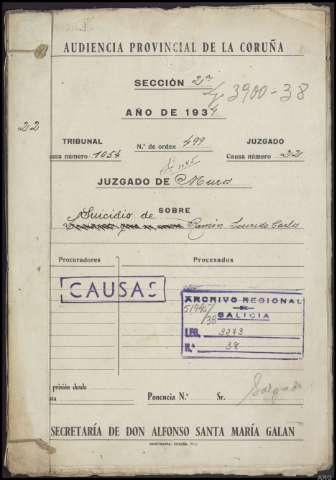 AUDIENCIA PROVINCIAL DE LA CORUÑA
SECCIÓN 2ª
3900-38
AÑO DE 1934
22
TRIBUNAL N.º de orden 499 JUZGADO
ausa número 1054 Causa número 22
JUZGADO DE Muros
SOBRE
Suicidio de Ramón
Procuradores Procesados
CAUSAS
ARCHIVO REGIONAL
DE
GALICIA
LEG. 3973
N.º 38
prisión desde
Ponencia N.º Sr. Salgado
SECRETARÍA DE DON ALFONSO SANTA MARÍA GALAN